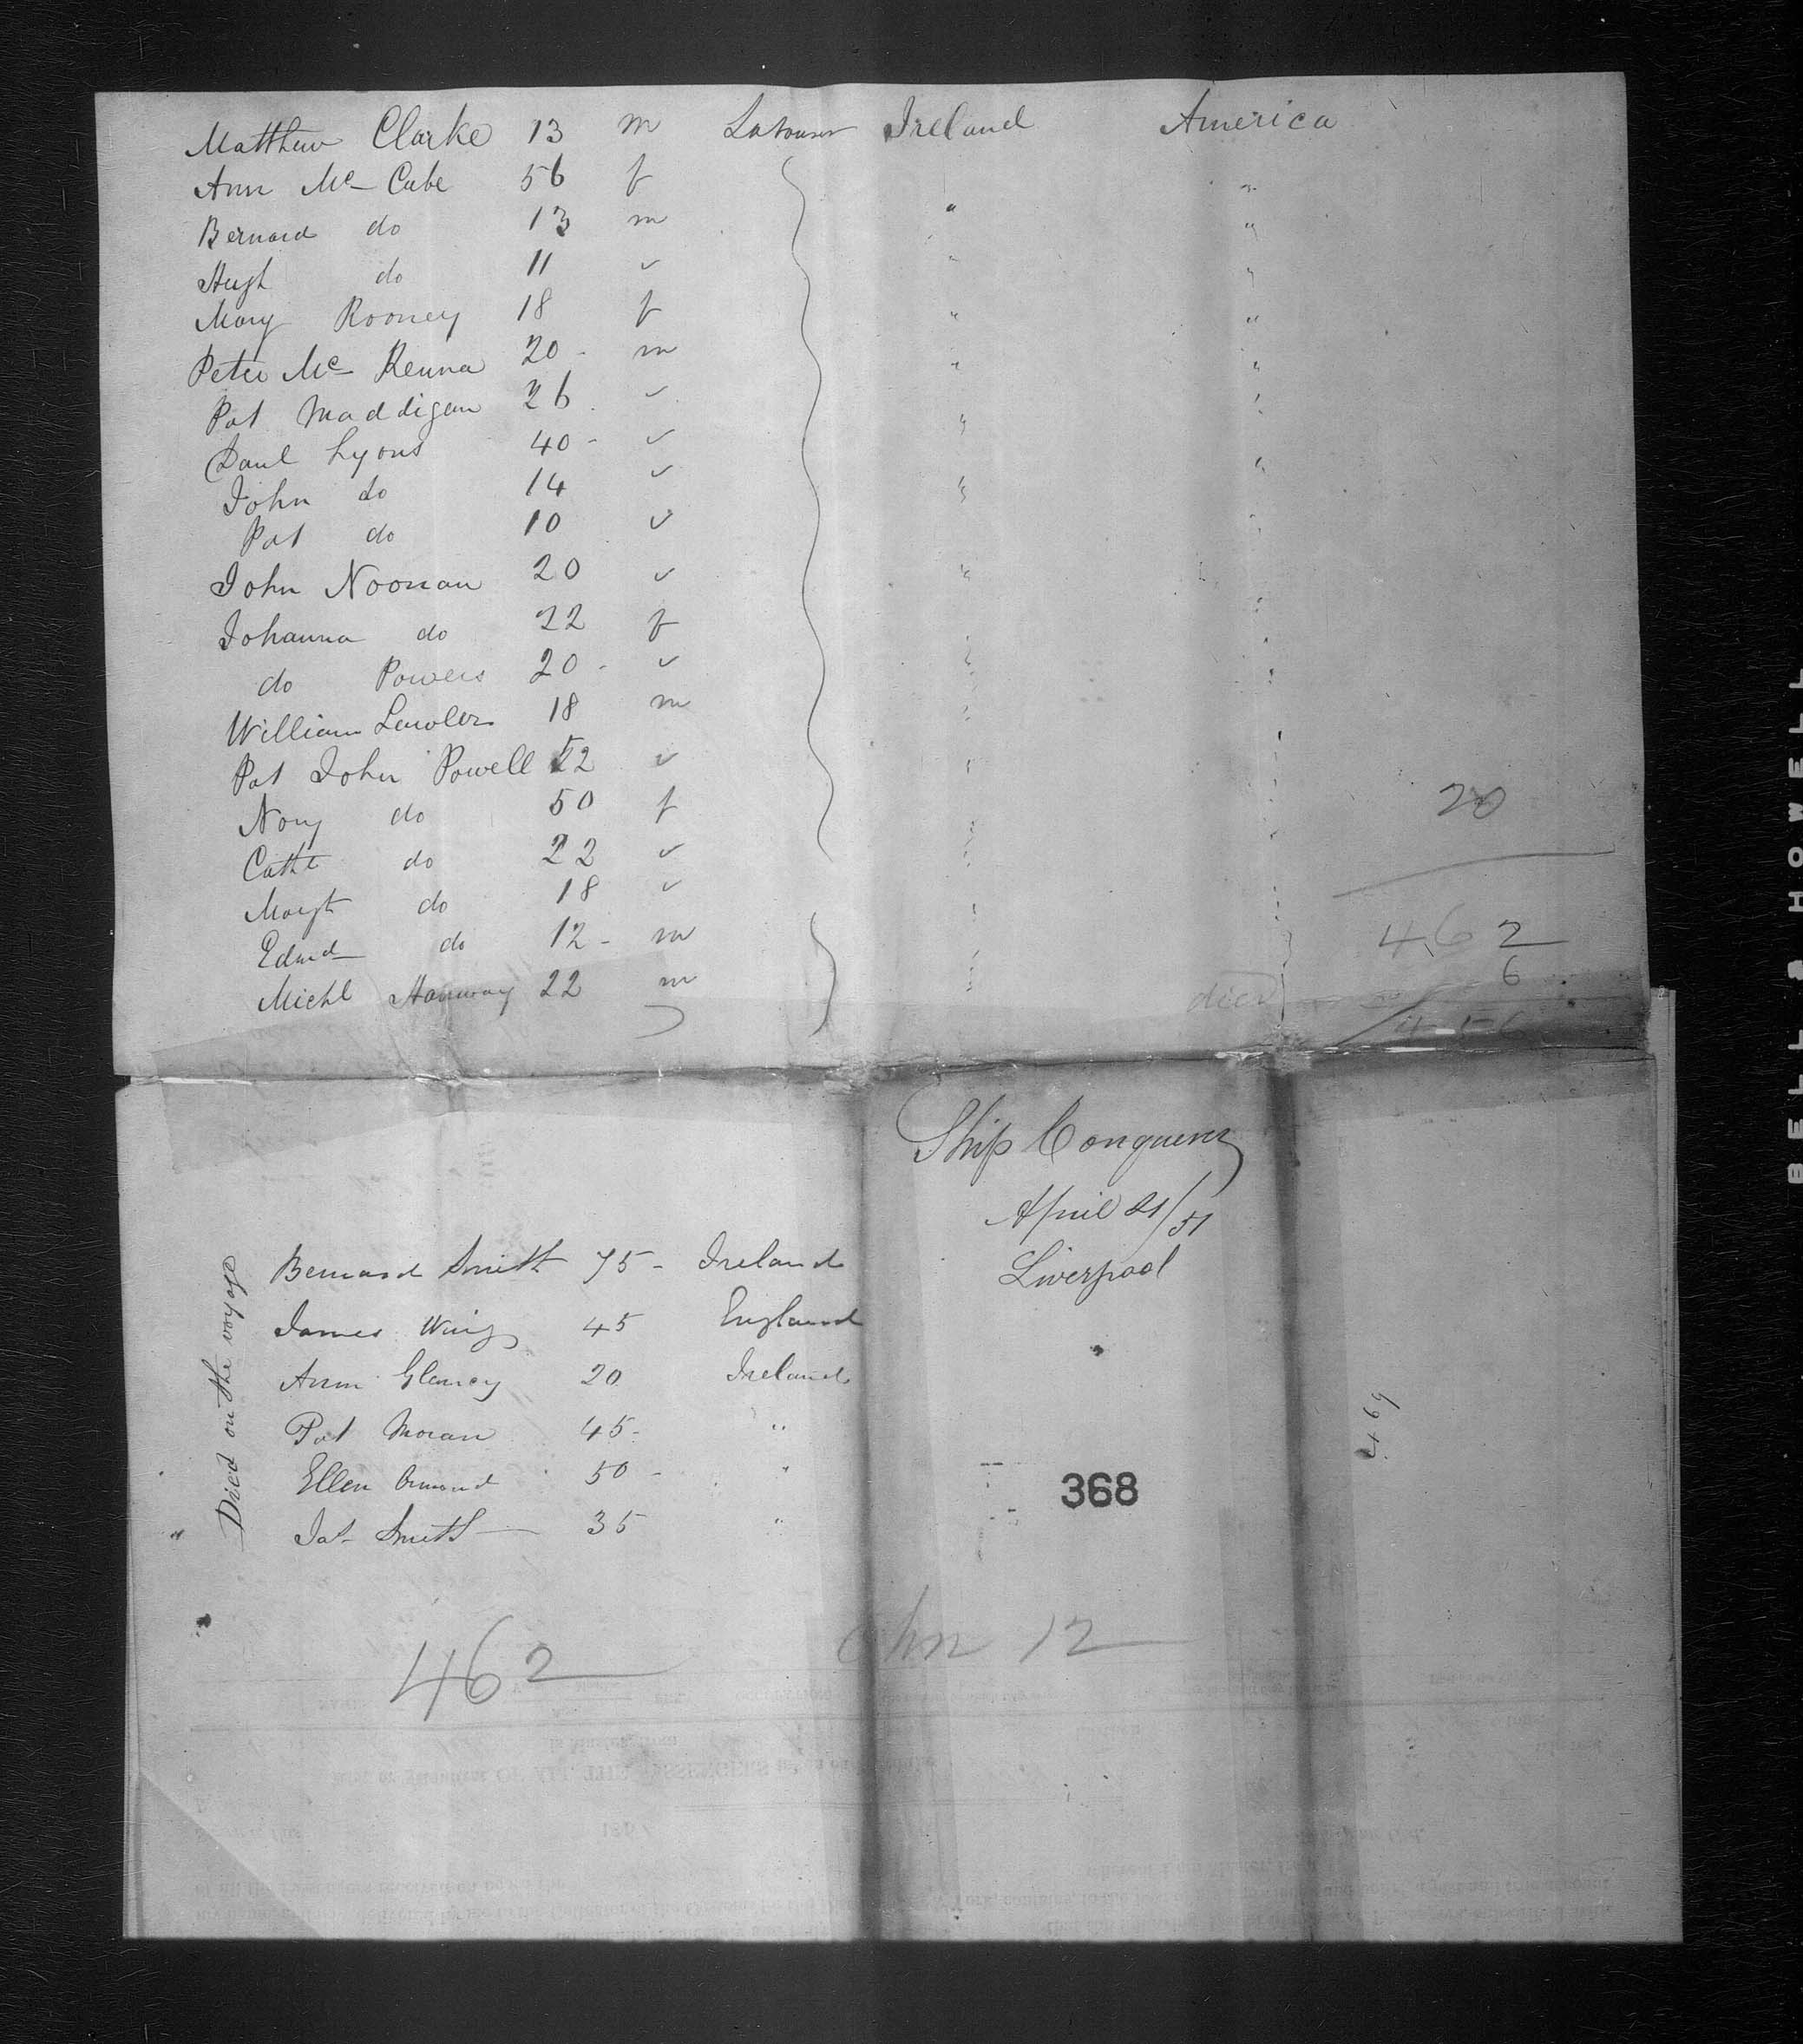 Matthew Clarke 13 m Labourer Ireland America
Ann Mc Cabe 56 f " "
Bernard do 13 m " "
Hugh do 11 " " "
Mary Rooney 18 f " "
Peter Mc Kenna 20 - m " "
Pat Maddigan 26 " " "
Paul Lyons 40 - " " "
John do 14 " " "
Pat do 10 " " "
John Noonan 20 " " "
Johanna do 22 f " "
do Powers 20 - " " "
William Lawler 18 m " "
Pat John Powell 52 " " "
Nony do 50 f " "
20
Cathe do 22 " " "
Margt do 18 " " "
Edmd do 12 - m " "
462
Michl Hanway 22 m " "
6
died
456
Ship Conqueror
April 21/51
Liverpool
Died on the voyage
Bernard Smith 75 - Ireland
James Wing 45 England
Ann Glancy 20 Ireland
Pat Moran 45 - "
Ellen Ormond 50 - "
Pat Smith 35 "
469
368
462
12
BELL & HOWELL